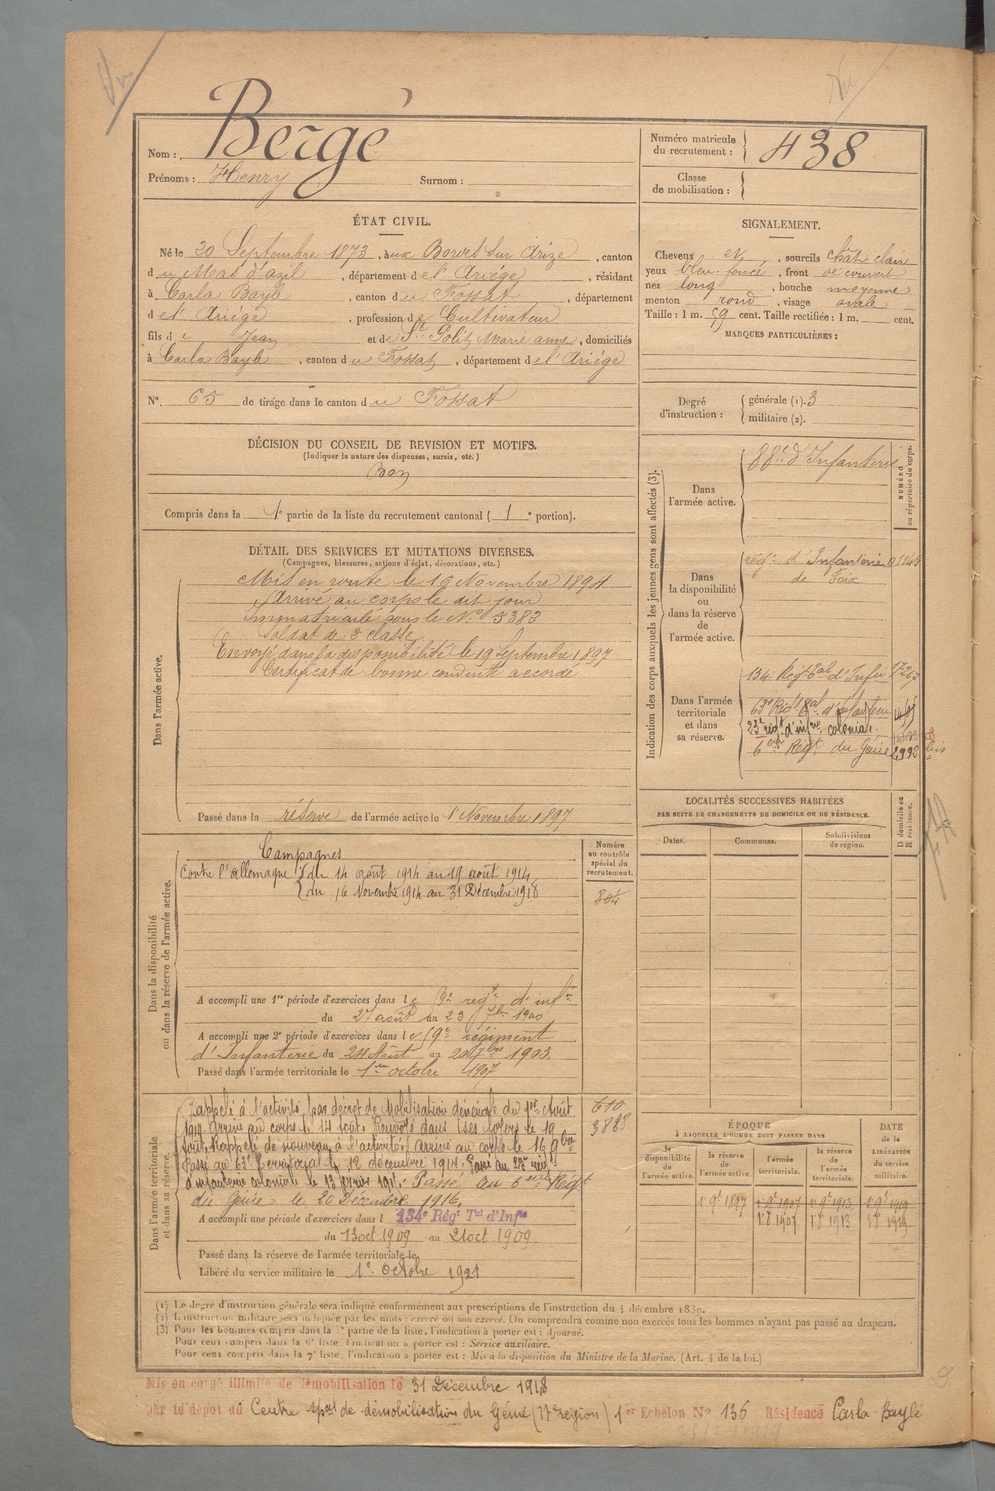 Vu
Vu
Nom : Bergé
Prénoms : Henry Surnom :
Numéro matricule du recrutement : 438
Classe de mobilisation :
ÉTAT CIVIL.
Né le 20 Septembre 1873, à aux Bordes sur Arize, canton
du Mas d'azil, département de l'Ariége, résidant
à Carla Bayle, canton du Fossat, département
de l'Ariège, profession de Cultivateur
fils de Jean et de Marie anne, domiciliés
à Carla Bayle, canton du Fossat, département de l'Ariége
N° 65 de tirage dans le canton du Fossat
SIGNALEMENT.
Cheveux et, sourcils chat. clair
yeux bleu foncé, front découvert
nez long, bouche moyenne
menton rond, visage ovale
Taille : 1 m. 59 cent. Taille rectifiée : 1 m. cent.
MARQUES PARTICULIÈRES :
Degré d'instruction : générale (1). 3
militaire (2).
DÉCISION DU CONSEIL DE REVISION ET MOTIFS.
(Indiquer la nature des dispenses, sursis, etc.)
Bon
Compris dans la 1e partie de la liste du recrutement cantonal ( 1 e portion).
DÉTAIL DES SERVICES ET MUTATIONS DIVERSES.
(Campagnes, blessures, actions d'éclat, décorations, etc.)
Dans l'armée active.
Mis en route le 16 Novembre 1894
Arrivé au corps le dit jour
immatriculé sous le N° 5382
soldat de 2e classe
Envoyé dans la disponibilité le 19 Septembre 1897
Certificat de bonne conduite accordé
Passé dans la réserve de l'armée active le 1er Novembre 1897
Indication des corps auxquels les jeunes gens sont affectés (3).
NUMÉRO au répertoire du corps.
Dans l'armée active.
88e d'Infanterie
Dans la disponibilité ou dans la réserve de l'armée active.
régt. d'Infanterie
de Foix
Dans l'armée territoriale et dans sa réserve.
134 Régt Tal d'Infie 1727
63e Régt Tal d'infanterie
23e régt d'infie coloniale
6eme Régt du Génie 2992 bis
LOCALITÉS SUCCESSIVES HABITÉES
PAR SUITE DE CHANGEMENTS DE DOMICILE OU DE RÉSIDENCE.
Dates. Communes. Subdivisions de région. D domicile ou R résidence.
Dans la disponibilité ou dans la réserve de l'armée active.
Numéro au contrôle spécial du recrutement.
304
Campagnes
Contre l'allemagne du 14 août 1914 au 19 août 1914
du 16 Novembre 1914 au 31 Décembre 1918
A accompli une 1re période d'exercices dans le 59e regt d'infie
du 27 août au 23 7bre 1900
A accompli une 2e période d'exercices dans le 59e régiment
d'Infanterie du 24 Août au 20 7bre 1903
Passé dans l'armée territoriale le 1er octobre 1907
Dans l'armée territoriale et dans sa réserve.
610
3818
Rappelé à l'activité par décret de Mobilisation Générale du 1er Août
1914 Arrivé au corps le 14 août. Renvoyé dans ses foyers le 19
août. Rappelé de nouveau à l'activité, arrivé au corps le 16 9bre
Passé au 63e Territorial le 12 décembre 1914. Passé au 23e régt
d'infanterie coloniale le 13 février 191. Passé au 6eme Régt
du Génie le 20 Décembre 1916.
A accompli une période d'exercices dans l 134e Régt Tal d'Infie
du 13 oct 1909 au 21 oct 1909
Passé dans la réserve de l'armée territoriale le
Libéré du service militaire le 1er Octobre 1921
ÉPOQUE
À LAQUELLE L'HOMME DOIT PASSER DANS
DATE de la LIBÉRATION du service militaire.
la disponibilité de l'armée active. la réserve de l'armée active. l'armée territoriale. la réserve de l'armée territoriale.
1er 9e 1897 1er 9e 1907 1er 9e 1913 1er 9e 1919
1er 8 1907 1er 8 1913 1er 8 1919
(1) Le degré d'instruction générale sera indiqué conformément aux prescriptions de l'instruction du 4 décembre 1889.
(2) L'instruction militaire sera indiquée par les mots : exercé ou non exercé. On comprendra comme non exercés tous les hommes n'ayant pas passé au drapeau.
(3) Pour les hommes compris dans la 5e partie de la liste, l'indication à porter est : Ajourné.
Pour ceux compris dans la 6e liste, l'indication à porter est : Service auxiliaire.
Pour ceux compris dans la 7e liste, l'indication à porter est : Mis à la disposition du Ministre de la Marine. (Art. 4 de la loi.)
Mis en congé illimité de démobilisation le 31 Décembre 1918
par le dépôt du Centre spal de démobilisation du Génie (17e région) 1er Echelon N° 136 Résidence Carla-Bayle